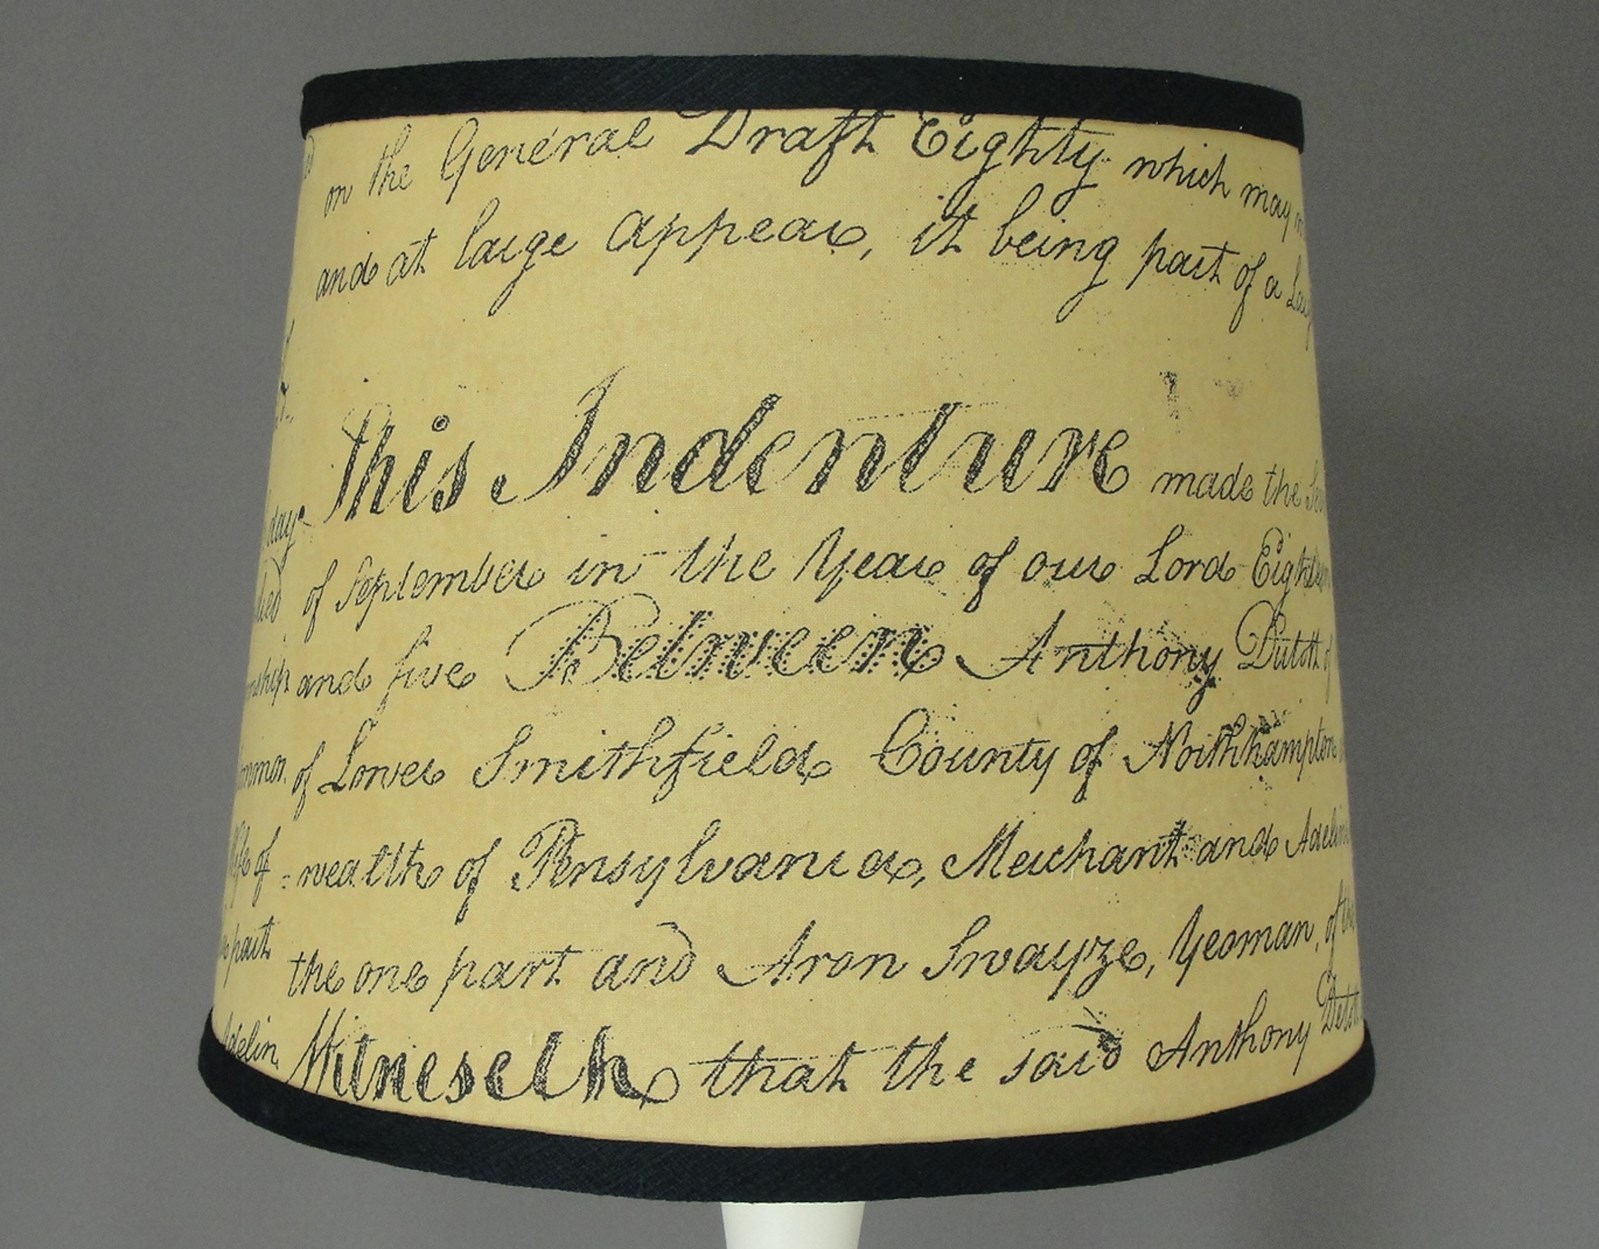 on the General Draft Eighty which may
and at large appear, it being part of a
This Indenture made the
day of September in the Year of our Lord
and five Between Anthony
of Lower Smithfield County of Northhampton
wife of =wealth of Pensylvania, Merchant and
part the one part and Aron Swayze, Yeoman, of
Adelin Witneseth that the said Anthony